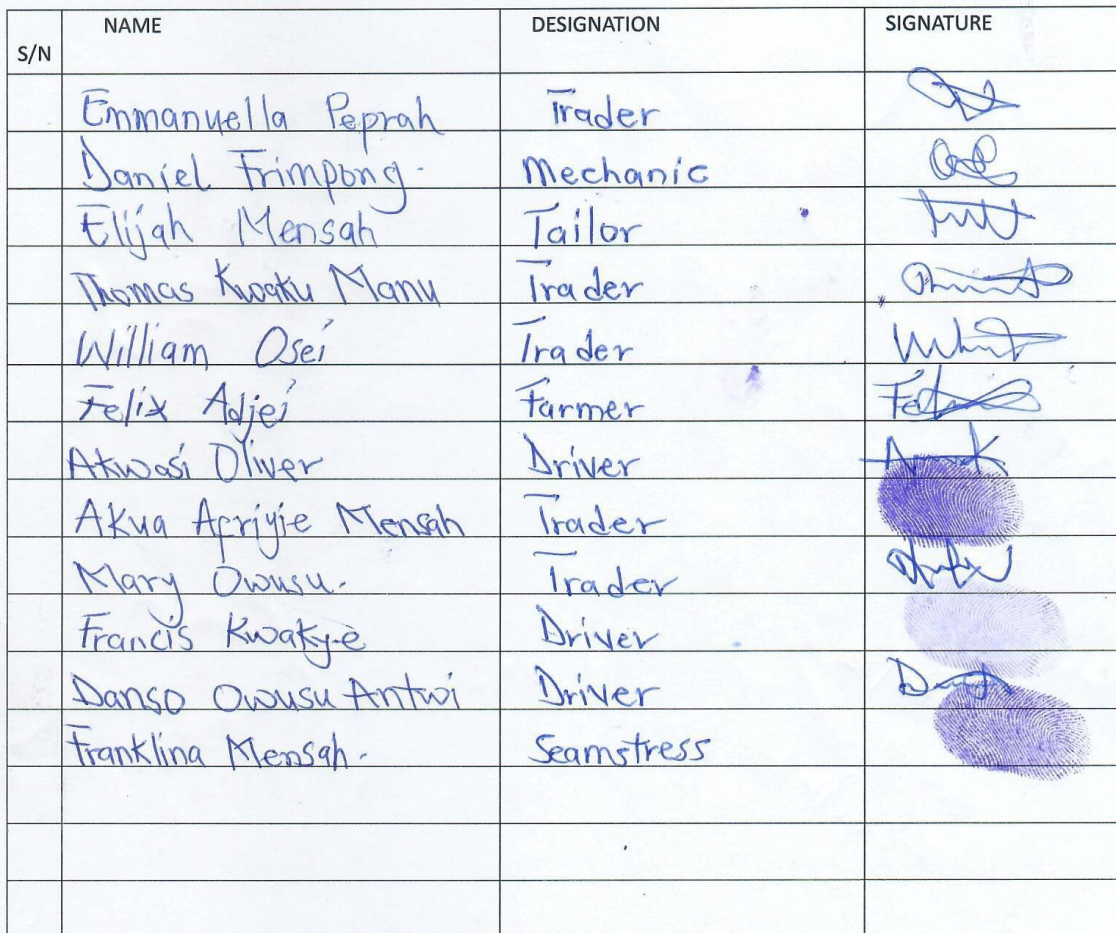 S/N NAME DESIGNATION SIGNATURE
Emmanuella Peprah Trader
Daniel Frimpong. Mechanic
Elijah Mensah Tailor
Thomas Kwaku Manu Trader
William Osei Trader
Felix Adjei Farmer
Akwasi Oliver Driver
Akua Afriyie Mensah Trader
Mary Owusu. Trader
Francis Kwakye Driver
Danso Owusu Antwi Driver
Franklina Mensah. Seamstress